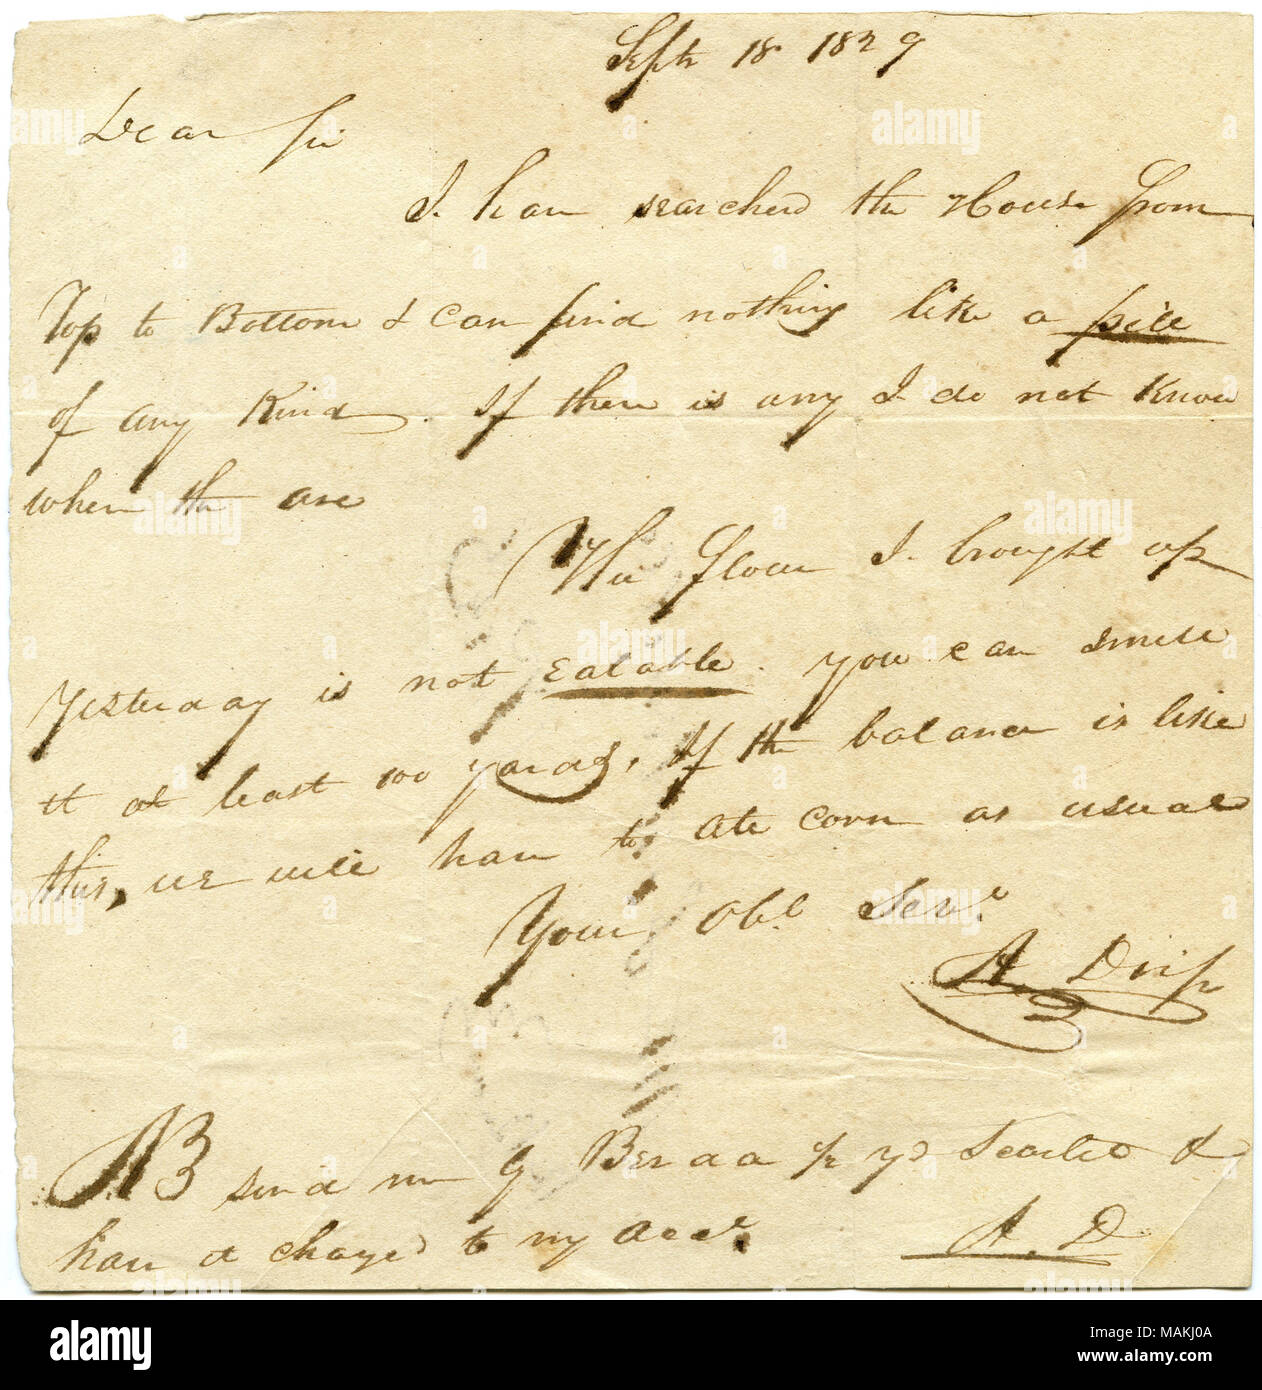 Sept 18 1829
Dear Sir
I have searched the House from
Top to Bottom & can find nothing like a pill
of any Kind. If there is any I do not Know
where the are
The flour I brought up
Yesterday is not Eatable. you can smell
it at least 100 yards, If the balance is like
this, we will have to ate corn as usual
Your Obt Servt
A. Drips
NB send me by Beraa 1/2 yd Scarlet &
have it charged to my acct. A. D
alamy
Image ID: MAKJ0A
www.alamy.com